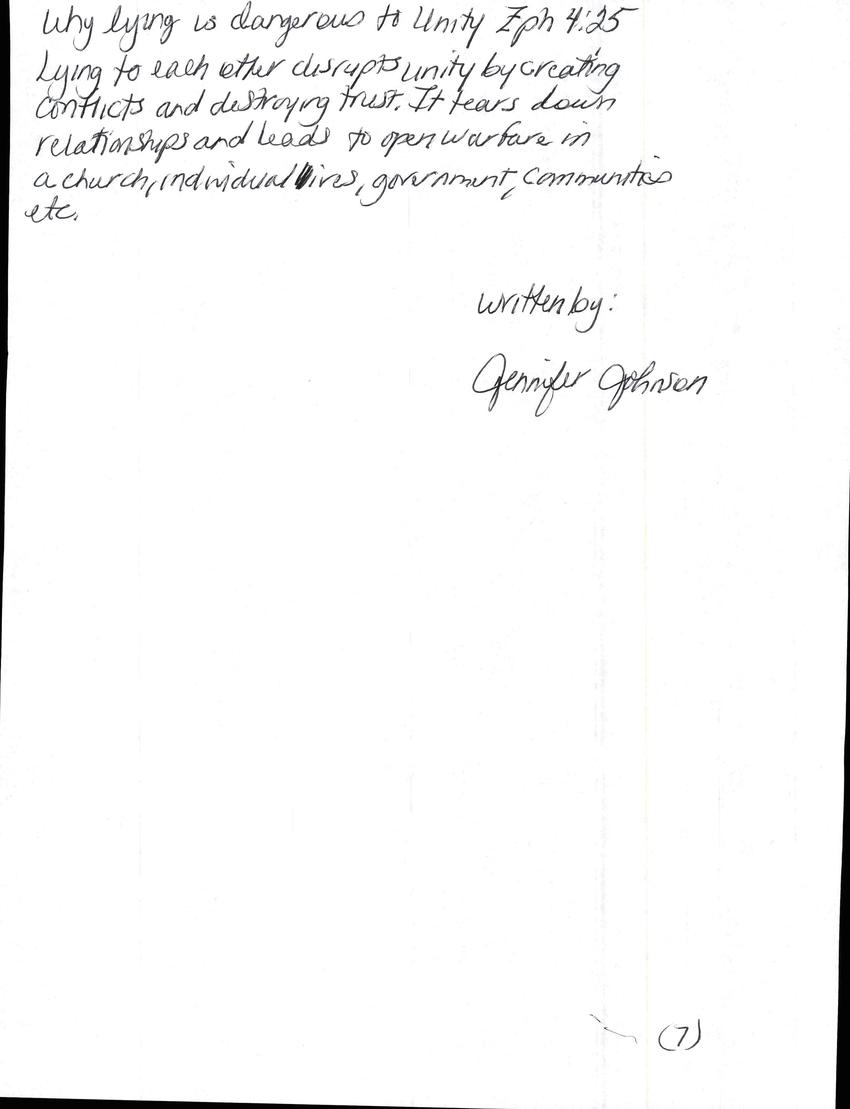 Why lying is dangerous to Unity Eph 4:25
Lying to each other disrupts unity by creating
conflicts and destroying trust. It tears down
relationships and leads to open warfare in
a church, individual lives, government, communities
etc.
written by:
Jennifer Johnson
(7)